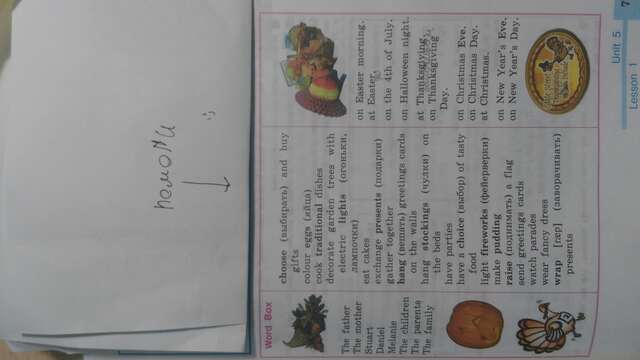 Word Box
The father
The mother
Stuart
Daniel
Melanie
The children
The parents
The family
choose (выбирать) and buy
gifts
colour eggs (яйца)
cook traditional dishes
decorate garden trees with
electric lights (огоньки,
лампочки)
eat cakes
exchange presents (подарки)
gather together
hang (вешать) greetings cards
on the walls
hang stockings (чулки) on
the beds
have parties
have a choice (выбор) of tasty
food
light fireworks (фейерверки)
make pudding
raise (поднимать) a flag
send greetings cards
watch parades
wear fancy dress
wrap [ræp] (заворачивать)
presents
on Easter morning.
at Easter.
on the 4th of July.
on Halloween night.
at Thanksgiving.
on Thanksgiving
Day.
on Christmas Eve.
on Christmas Day.
at Christmas.
on New Year's Eve.
on New Year's Day.
Unit 5
Lesson 1
7
помоги
:)